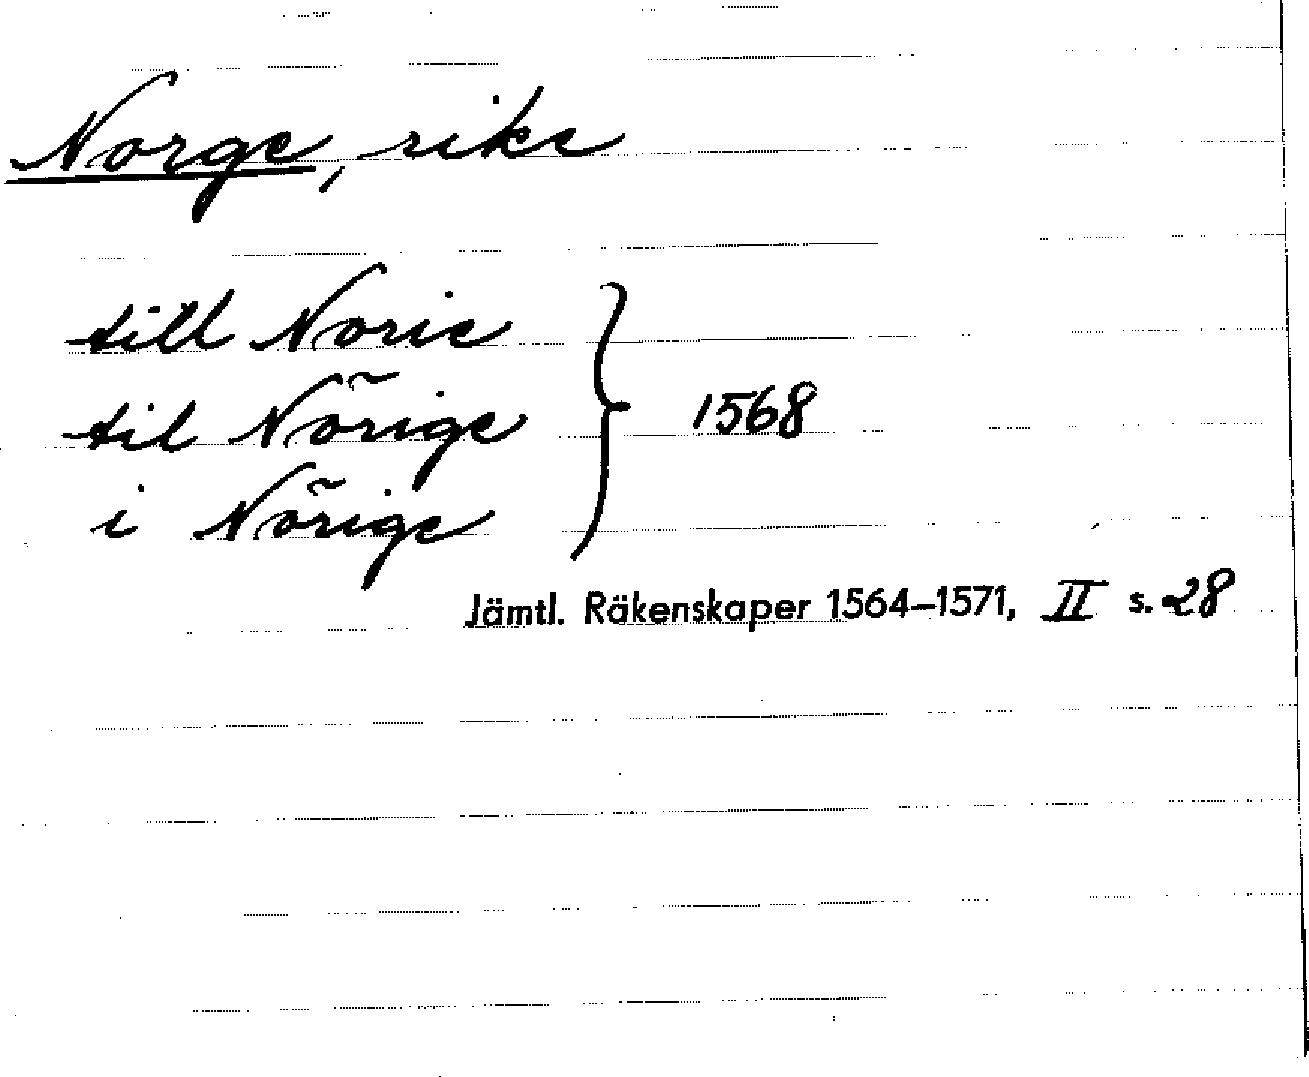 Norge, rike
till Norie
til Nõrige } 1568
i Nõrige
Jämtl. Räkenskaper 1564–1571, II s. 28